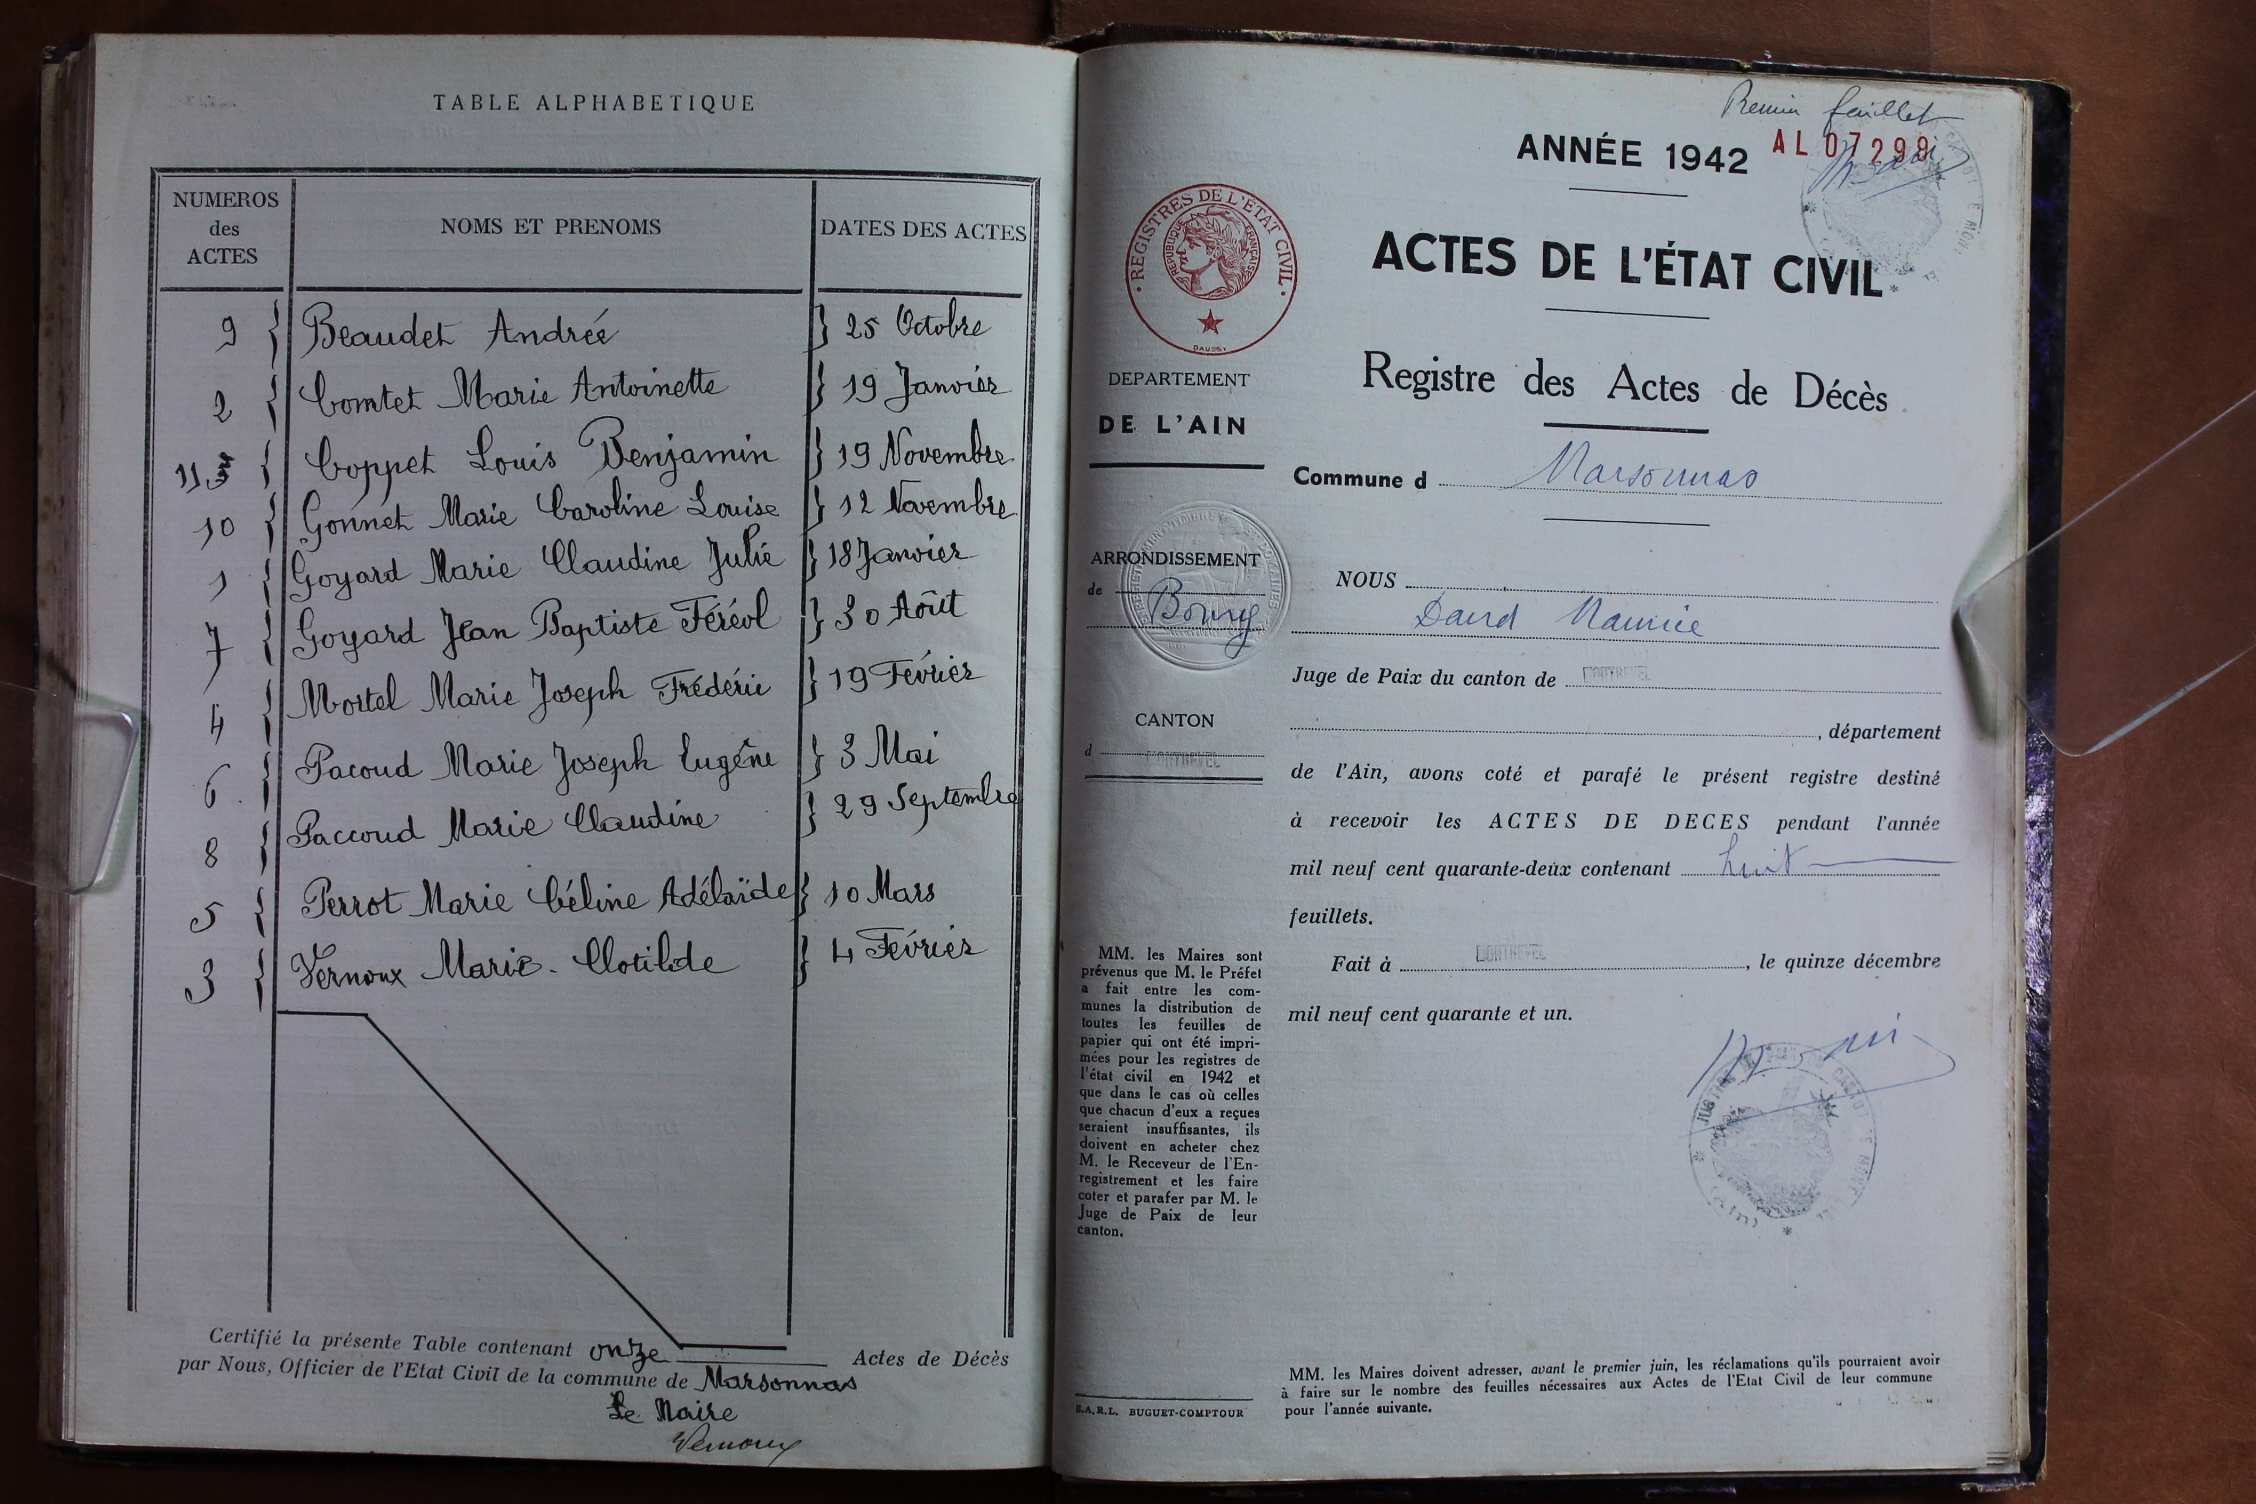 TABLE ALPHABETIQUE
NUMEROS
des
ACTES
NOMS ET PRENOMS
DATES DES ACTES
9 } Beaudet Andrée } 25 Octobre
2 } Comtet Marie Antoinette } 19 Janvier
11 } Coppet Louis Benjamin } 19 Novembre
10 } Gonnet Marie Caroline Louise } 12 Novembre
1 } Goyard Marie Claudine Julie } 18 Janvier
7 } Goyard Jean Baptiste Féréol } 30 Août
4 } Mortel Marie Joseph Frédéric } 19 Février
6 } Pacoud Marie Joseph Eugène } 3 Mai
8 } Paccoud Marie Claudine } 29 Septembre
5 } Perrot Marie Céline Adélaïde } 10 Mars
3 } Vernoux Marie-Clotilde } 4 Février
Certifié la présente Table contenant onze Actes de Décès
par Nous, Officier de l'Etat Civil de la commune de Marsonnas
Le Maire
Vernoux
Premier feuillet
ANNÉE 1942
AL 07298
REGISTRES DE L'ETAT CIVIL
REPUBLIQUE FRANCAISE
ACTES DE L'ÉTAT CIVIL
Registre des Actes de Décès
DEPARTEMENT
DE L'AIN
Commune d Marsonnas
ARRONDISSEMENT
de Bourg
CANTON
d MONTREVEL
NOUS
David Maurice
Juge de Paix du canton de MONTREVEL
, département
de l'Ain, avons coté et parafé le présent registre destiné
à recevoir les ACTES DE DECES pendant l'année
mil neuf cent quarante-deux contenant huit
feuillets.
Fait à MONTREVEL, le quinze décembre
mil neuf cent quarante et un.
MM. les Maires sont
prévenus que M. le Préfet
a fait entre les com-
munes la distribution de
toutes les feuilles de
papier qui ont été impri-
mées pour les registres de
l'état civil en 1942 et
que dans le cas où celles
que chacun d'eux a reçues
seraient insuffisantes, ils
doivent en acheter chez
M. le Receveur de l'En-
registrement et les faire
coter et parafer par M. le
Juge de Paix de leur
canton.
S.A.R.L. BUGUET-COMPTOUR
MM. les Maires doivent adresser, avant le premier juin, les réclamations qu'ils pourraient avoir
à faire sur le nombre des feuilles nécessaires aux Actes de l'Etat Civil de leur commune
pour l'année suivante.